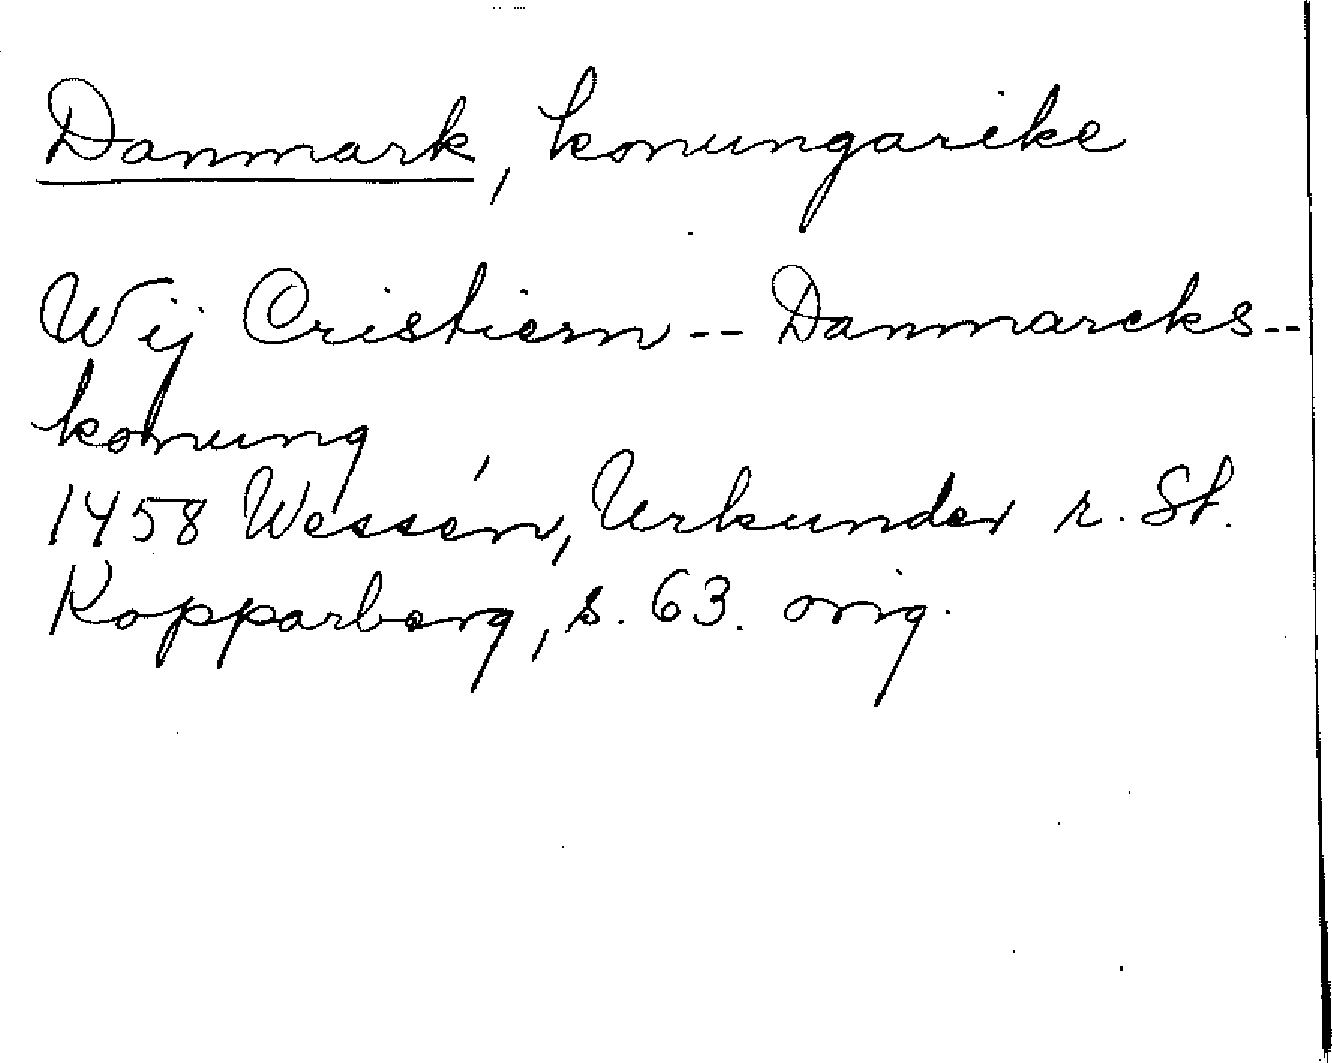 Danmark, konungarike
Wij Cristiern -- Danmarcks --
konung
1458 Wessén, Urkunder r. St.
Kopparberg, s. 63. orig.